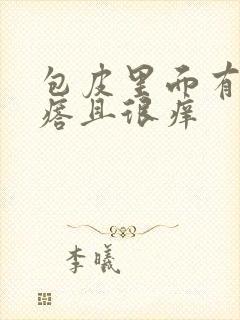 包皮里面有
痞且很痒
李曦